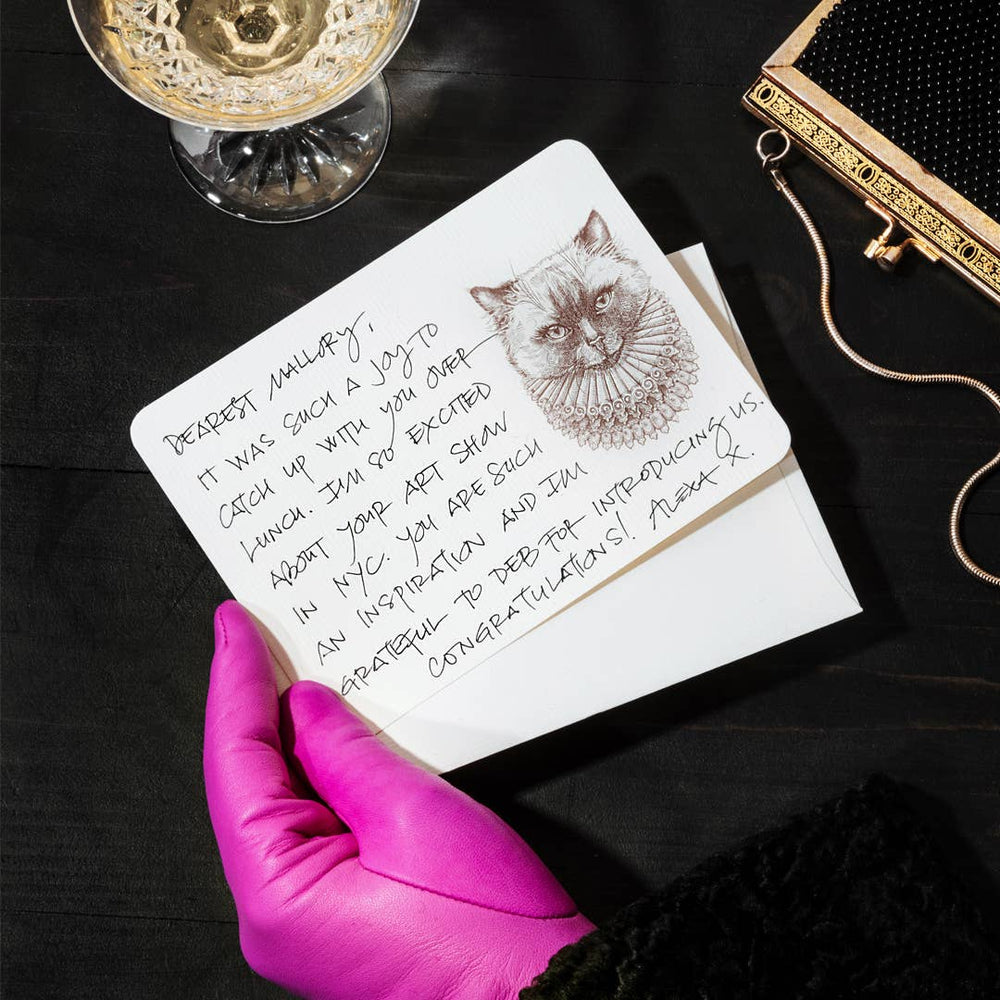 DEAREST MALLORY,
IT WAS SUCH A JOY TO
CATCH UP WITH YOU OVER
LUNCH. I'M SO EXCITED
ABOUT YOUR ART SHOW
IN NYC. YOU ARE SUCH
AN INSPIRATION AND I'M
GRATEFUL TO DEB FOR INTRODUCING US.
CONGRATULATIONS! ALEXA X.